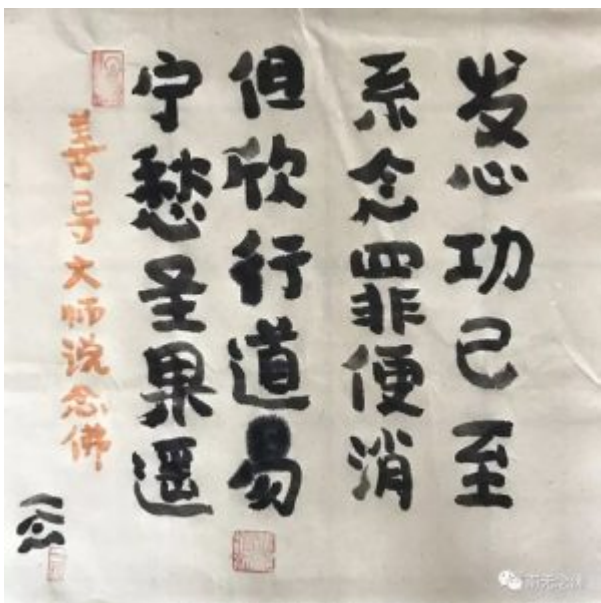 发心功已至
系念罪便消
但欣行道易
宁愁圣果遥
善导大师说念佛
一念